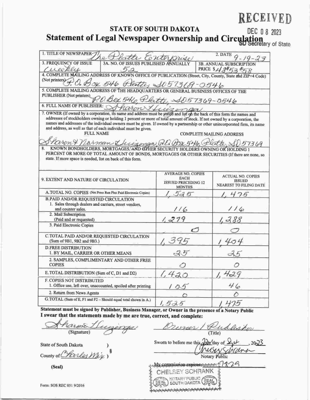 RECEIVED
DEC 08 2023
SD Secretary of State
STATE OF SOUTH DAKOTA
Statement of Legal Newspaper Ownership and Circulation
1. TITLE OF NEWSPAPER The Platte Enterprise
2. DATE 9-19-23
3. FREQUENCY OF ISSUE
3A. NO. OF ISSUES PUBLISHED ANNUALLY
3B. ANNUAL SUBSCRIPTION PRICE
Weekly
52
4. COMPLETE MAILING ADDRESS OF KNOWN OFFICE OF PUBLICATION (Street, City, County, State and ZIP+4 Code)
(Not printers) PO Box 546 Platte, SD 57369-0546
5. COMPLETE MAILING ADDRESS OF THE HEADQUARTERS OR GENERAL BUSINESS OFFICES OF THE
PUBLISHER (Not printers)
PO Box 546 Platte, SD 57369-0546
6. FULL NAME OF PUBLISHER: Sharon
7. OWNER (If owned by a corporation, its name and address must be stated and also the names and
addresses of stockholders owning or holding 1 percent or more of total amount of stock. If not owned by a corporation, the
names and addresses of the individual owners must be given. If owned by a partnership or other unincorporated firm, its name
and address, as well as that of each individual must be given.
FULL NAME
COMPLETE MAILING ADDRESS
8. KNOWN BONDHOLDERS, MORTGAGEES AND OTHER SECURITY HOLDERS OWNING OR HOLDING 1
PERCENT OR MORE OF TOTAL AMOUNT OF BONDS, MORTGAGES OR OTHER SECURITIES (If there are none, so
state. If more space is needed, list on back of this form.
9. EXTENT AND NATURE OF CIRCULATION
AVERAGE NO. COPIES EACH ISSUED PRECEDING 12 MONTHS
ACTUAL NO. COPIES ISSUED NEAREST TO FILING DATE
A. TOTAL NO. COPIES (Net Press Run Plus Paid Electronic Copies) 1,525 1,475
B. PAID AND/OR REQUESTED CIRCULATION
1. Sales through dealers and carriers, street vendors,
and counter sales. 116 116
2. Mail Subscription
(Paid and/or requested) 1,279 1,288
3. Paid Electronic Copies 0 0
C. TOTAL PAID AND/OR REQUESTED CIRCULATION
(Sum of 9B1, 9B2 and 9B3.) 1,395 1,404
D. FREE DISTRIBUTION
1. BY MAIL, CARRIER OR OTHER MEANS 25 25
2. SAMPLES, COMPLIMENTARY AND OTHER FREE
COPIES 0 0
E. TOTAL DISTRIBUTION (Sum of C, D1 and D2) 1,420 1,429
F. COPIES NOT DISTRIBUTED
1. Office use, left over, unaccounted, spoiled after printing 105 46
2. Return from News Agents 0 0
G. TOTAL (Sum of E, F1 and F2 - Should equal total shown in A.) 1,525 1,475
Statement must be signed by Publisher, Business Manager, or Owner in the presence of a Notary Public
I swear that the statements made by me are true, correct, and complete:
(Signature)
(Title)
State of South Dakota )
County of Charles Mix )
Sworn to before me this day of Sept, 2023.
Chelsey Schrank
Notary Public
(Seal)
My commission expires
CHELSEY SCHRANK
NOTARY PUBLIC
SOUTH DAKOTA